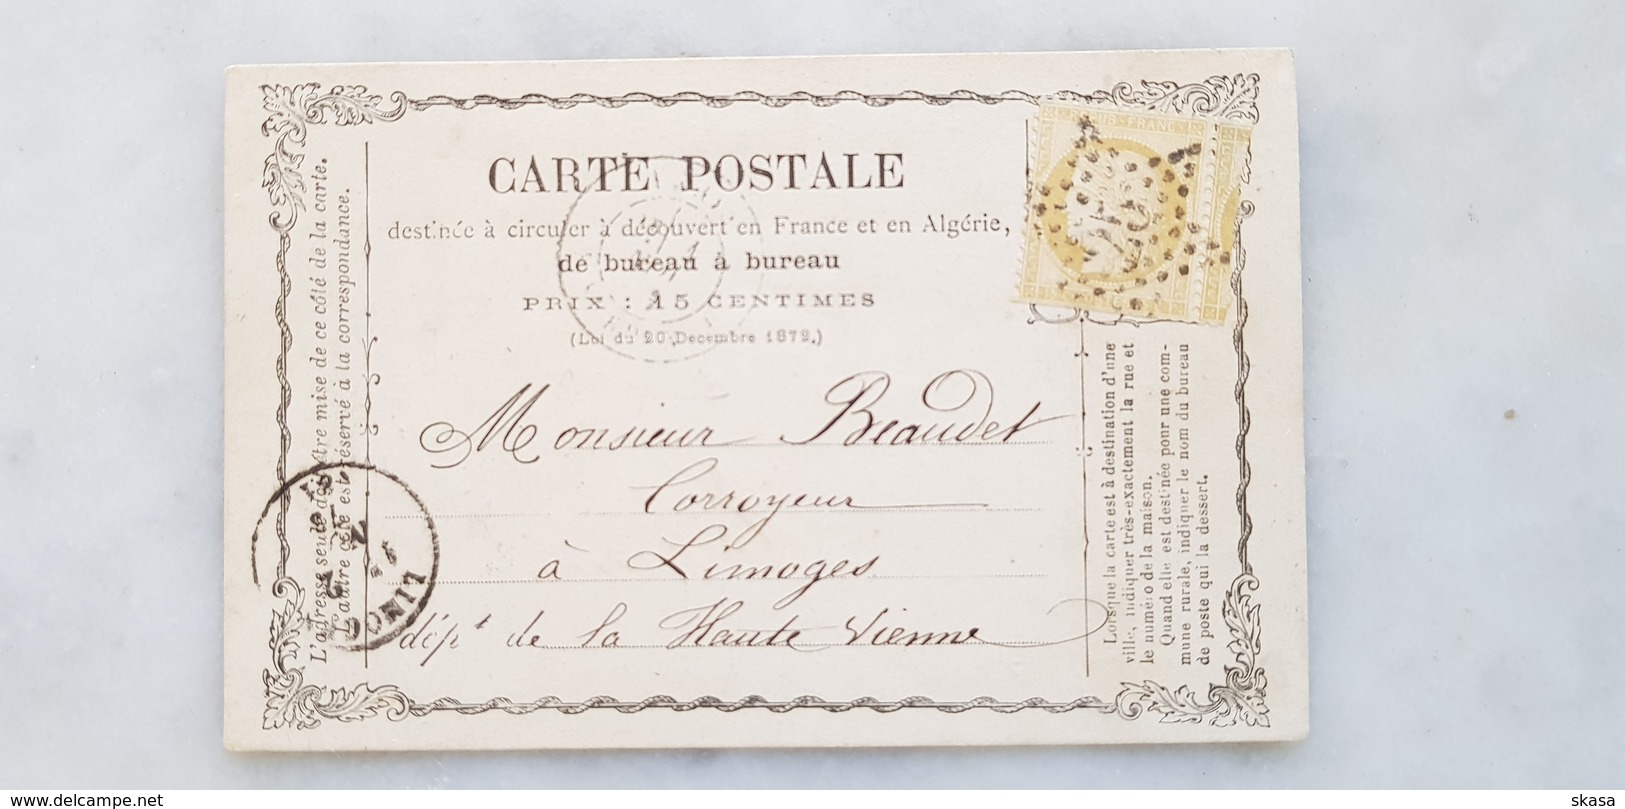 REPUB · FRANC
CARTE POSTALE
destinée à circuler à découvert en France et en Algérie,
de bureau à bureau
PRIX : 15 CENTIMES
(Loi du 20 Decembre 1872.)
Monsieur Beaudet
Corroyeur
à Limoges
dépt de la Haute Vienne
L'adresse seule doit être mise de ce côté de la carte.
L'autre côté est réservé à la correspondance.
LIMOG
Lorsque la carte est à destination d'une
ville, indiquer très-exactement la rue et
le numéro de la maison.
Quand elle est destinée pour une com-
mune rurale, indiquer le nom du bureau
de poste qui la dessert.
delcampe.net
skasa